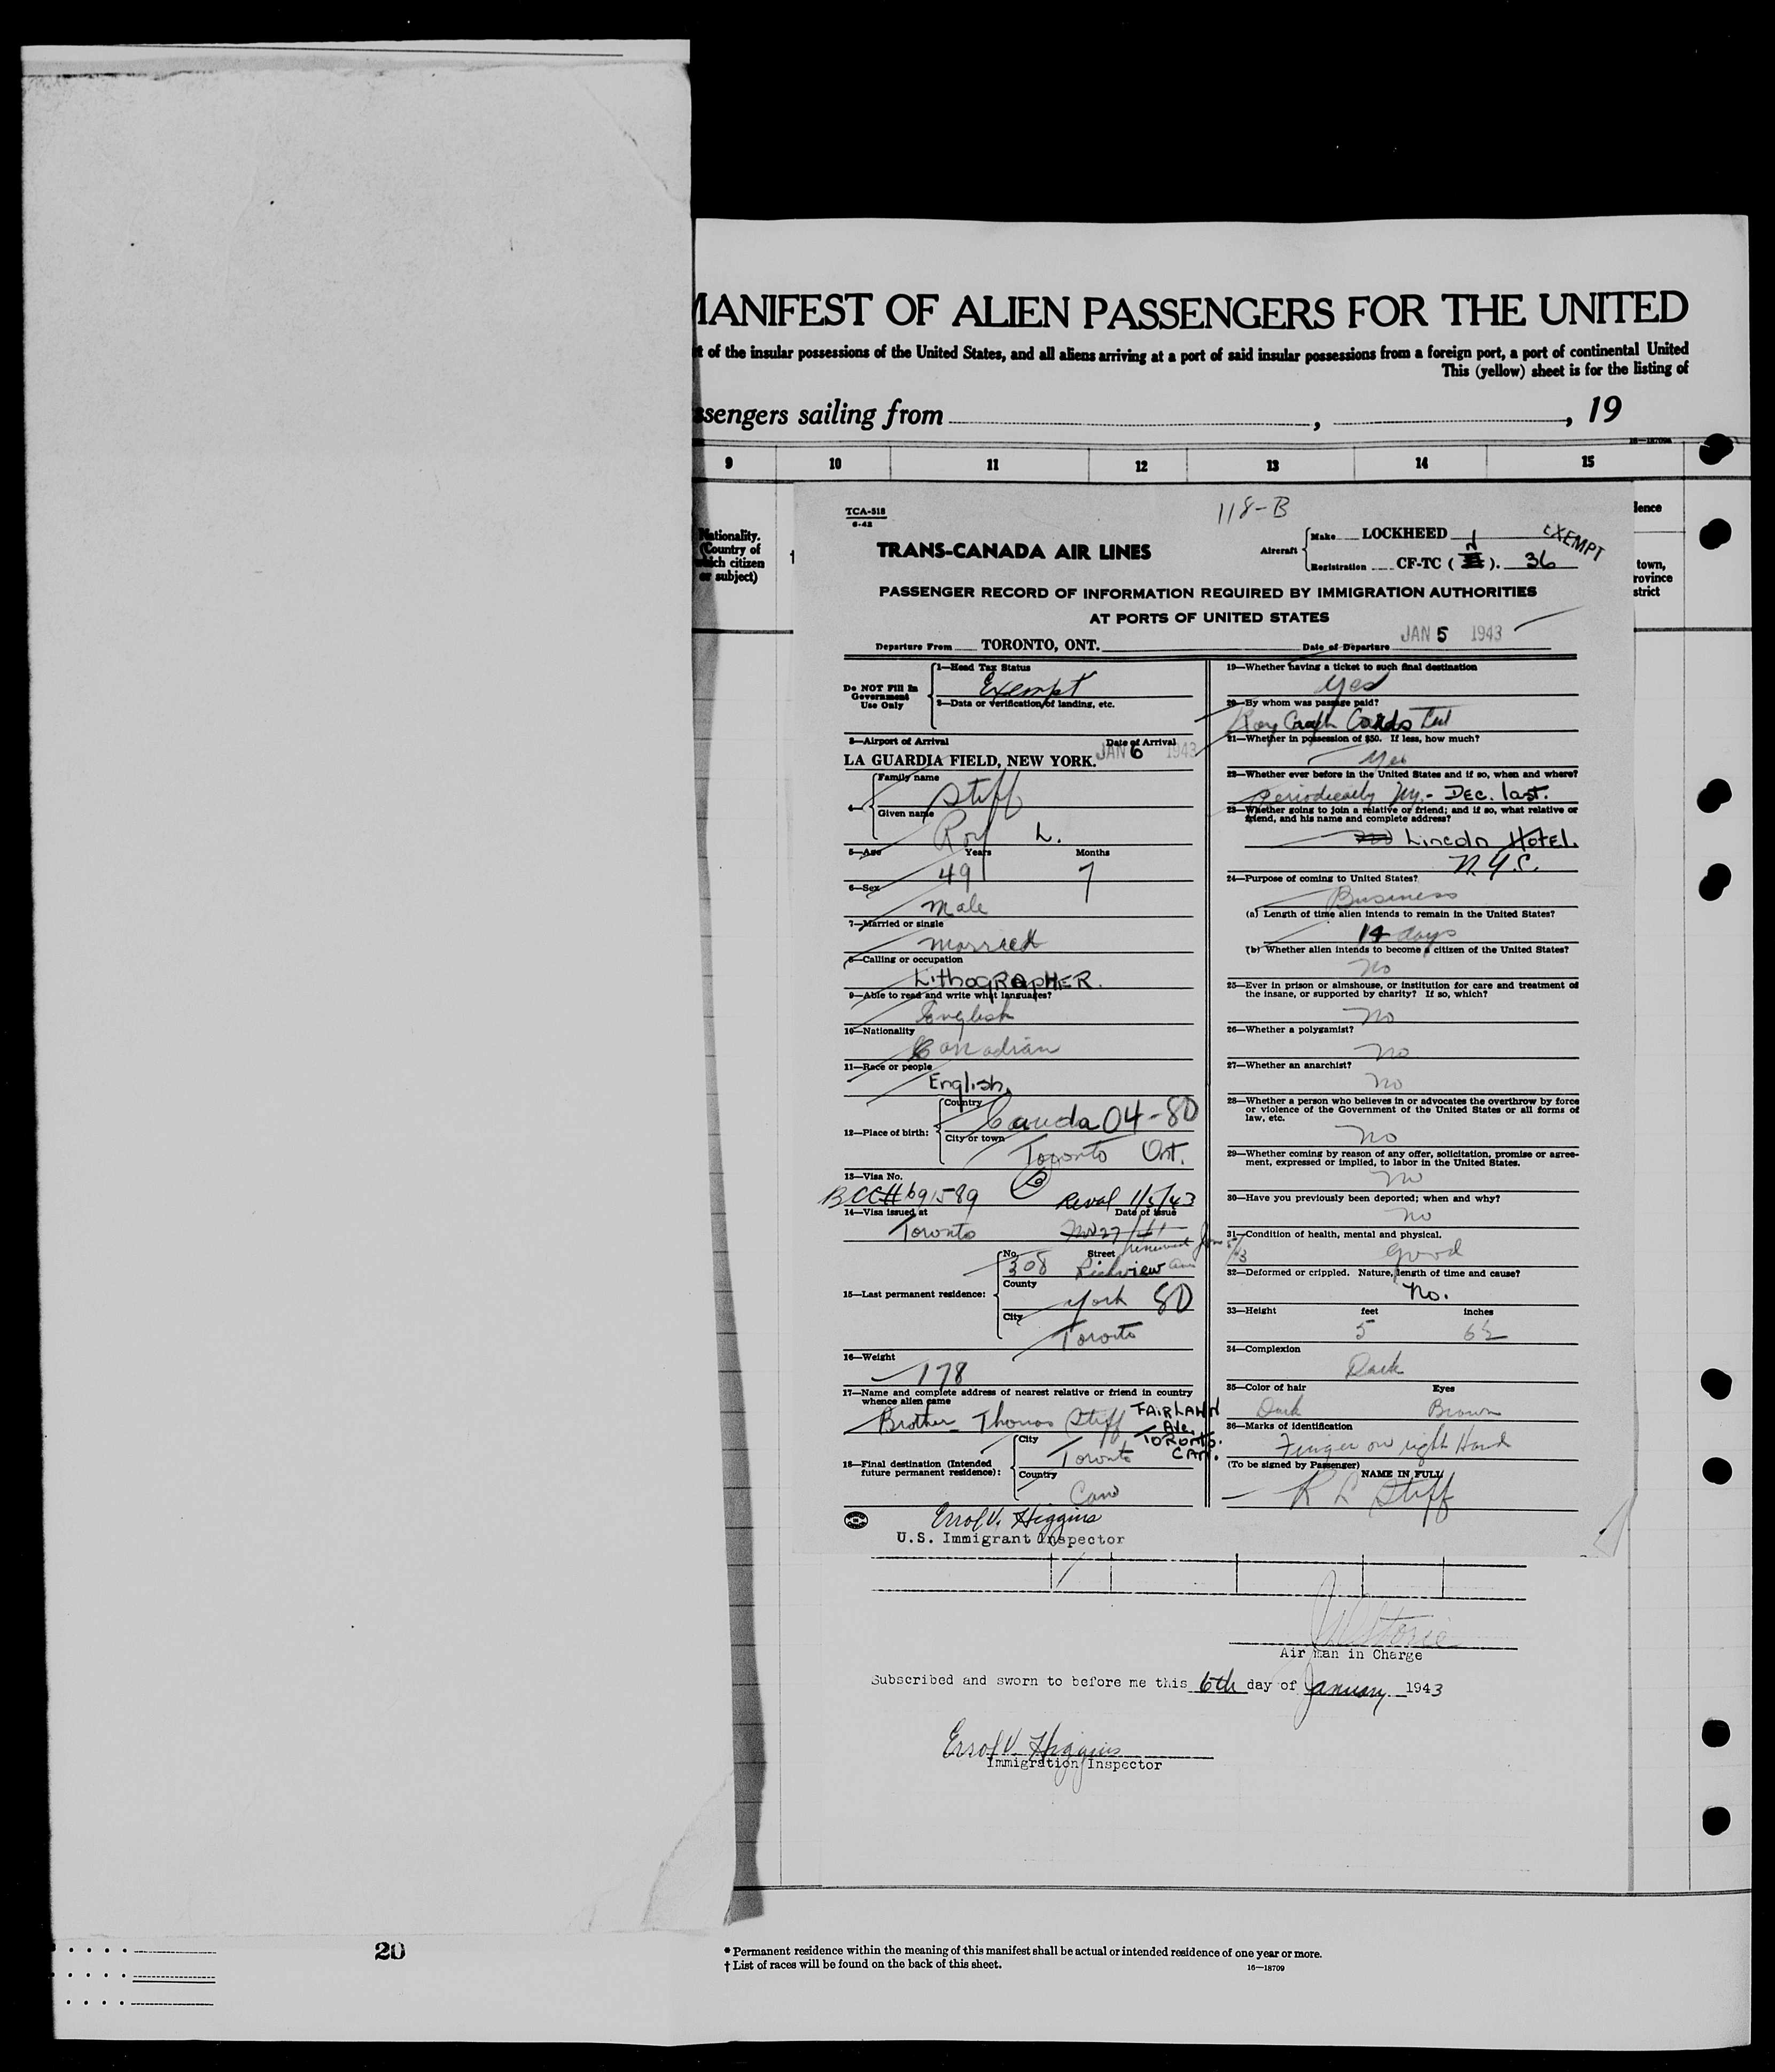 MANIFEST OF ALIEN PASSENGERS FOR THE UNITED
of the insular possessions of the United States, and all aliens arriving at a port of said insular possessions from a foreign port, a port of continental United
This (yellow) sheet is for the listing of
ssengers sailing from , , 19
9 10 11 12 13 14 15
Nationality.
(Country of
which citizen
or subject)
dence
town,
rovince
strict
118-B
TCA-518
6-42
TRANS-CANADA AIR LINES
Aircraft
Make LOCKHEED
EXEMPT
Registration CF-TC ( ). 36
PASSENGER RECORD OF INFORMATION REQUIRED BY IMMIGRATION AUTHORITIES
AT PORTS OF UNITED STATES
Departure From TORONTO, ONT.
Date of Departure JAN 5 1943
Do NOT Fill In
Government
Use Only
1—Head Tax Status
Exempt
2—Data or verification of landing, etc.
3—Airport of Arrival Date of Arrival
LA GUARDIA FIELD, NEW YORK. JAN 6 1943
4—
Family name
Stiff
Given name
Roy L.
5—Age Years Months
49 7
6—Sex
Male
7—Married or single
Married
8—Calling or occupation
LithogRApHER.
9—Able to read and write what languages?
English
10—Nationality
Canadian
11—Race or people
English
12—Place of birth:
Country
Canada 04-80
City or town
Toronto Ont.
13—Visa No.
BCC# 691589 Reval 1/5/43
14—Visa issued at Date of issue
Toronto Nov 27/41
renewed Jan 5/43
15—Last permanent residence:
No. Street
308 Richview Ave
County
York 80
City
Toronto
16—Weight
178
17—Name and complete address of nearest relative or friend in country
whence alien came
Brother Thomas Stiff FAIRLAWN
Ave.
TORONTO.
CAN.
18—Final destination (Intended
future permanent residence):
City
Toronto
Country
Can
Errol V. Higgins
U.S. Immigrant Inspector
19—Whether having a ticket to such final destination
Yes
20—By whom was passage paid?
21—Whether in possession of $50. If less, how much?
Yes
22—Whether ever before in the United States and if so, when and where?
Periodically NY.- DEC. last.
23—Whether going to join a relative or friend; and if so, what relative or
friend, and his name and complete address?
Lincoln Hotel.
N.Y.C.
24—Purpose of coming to United States?
Business
(a) Length of time alien intends to remain in the United States?
14 days
(b) Whether alien intends to become a citizen of the United States?
No
25—Ever in prison or almshouse, or institution for care and treatment of
the insane, or supported by charity? If so, which?
No
26—Whether a polygamist?
No
27—Whether an anarchist?
No
28—Whether a person who believes in or advocates the overthrow by force
or violence of the Government of the United States or all forms of
law, etc.
No
29—Whether coming by reason of any offer, solicitation, promise or agree-
ment, expressed or implied, to labor in the United States.
No
30—Have you previously been deported; when and why?
No
31—Condition of health, mental and physical.
Good
32—Deformed or crippled. Nature, length of time and cause?
No.
33—Height feet inches
5 6½
34—Complexion
Dark
35—Color of hair Eyes
Dark Brown
36—Marks of identification
Finger on right Hand
(To be signed by Passenger)
NAME IN FULL
R L Stiff
Air man in Charge
Subscribed and sworn to before me this 6th day of January 1943
Errol V. Higgins
Immigration Inspector
20
* Permanent residence within the meaning of this manifest shall be actual or intended residence of one year or more.
† List of races will be found on the back of this sheet.
16—18709